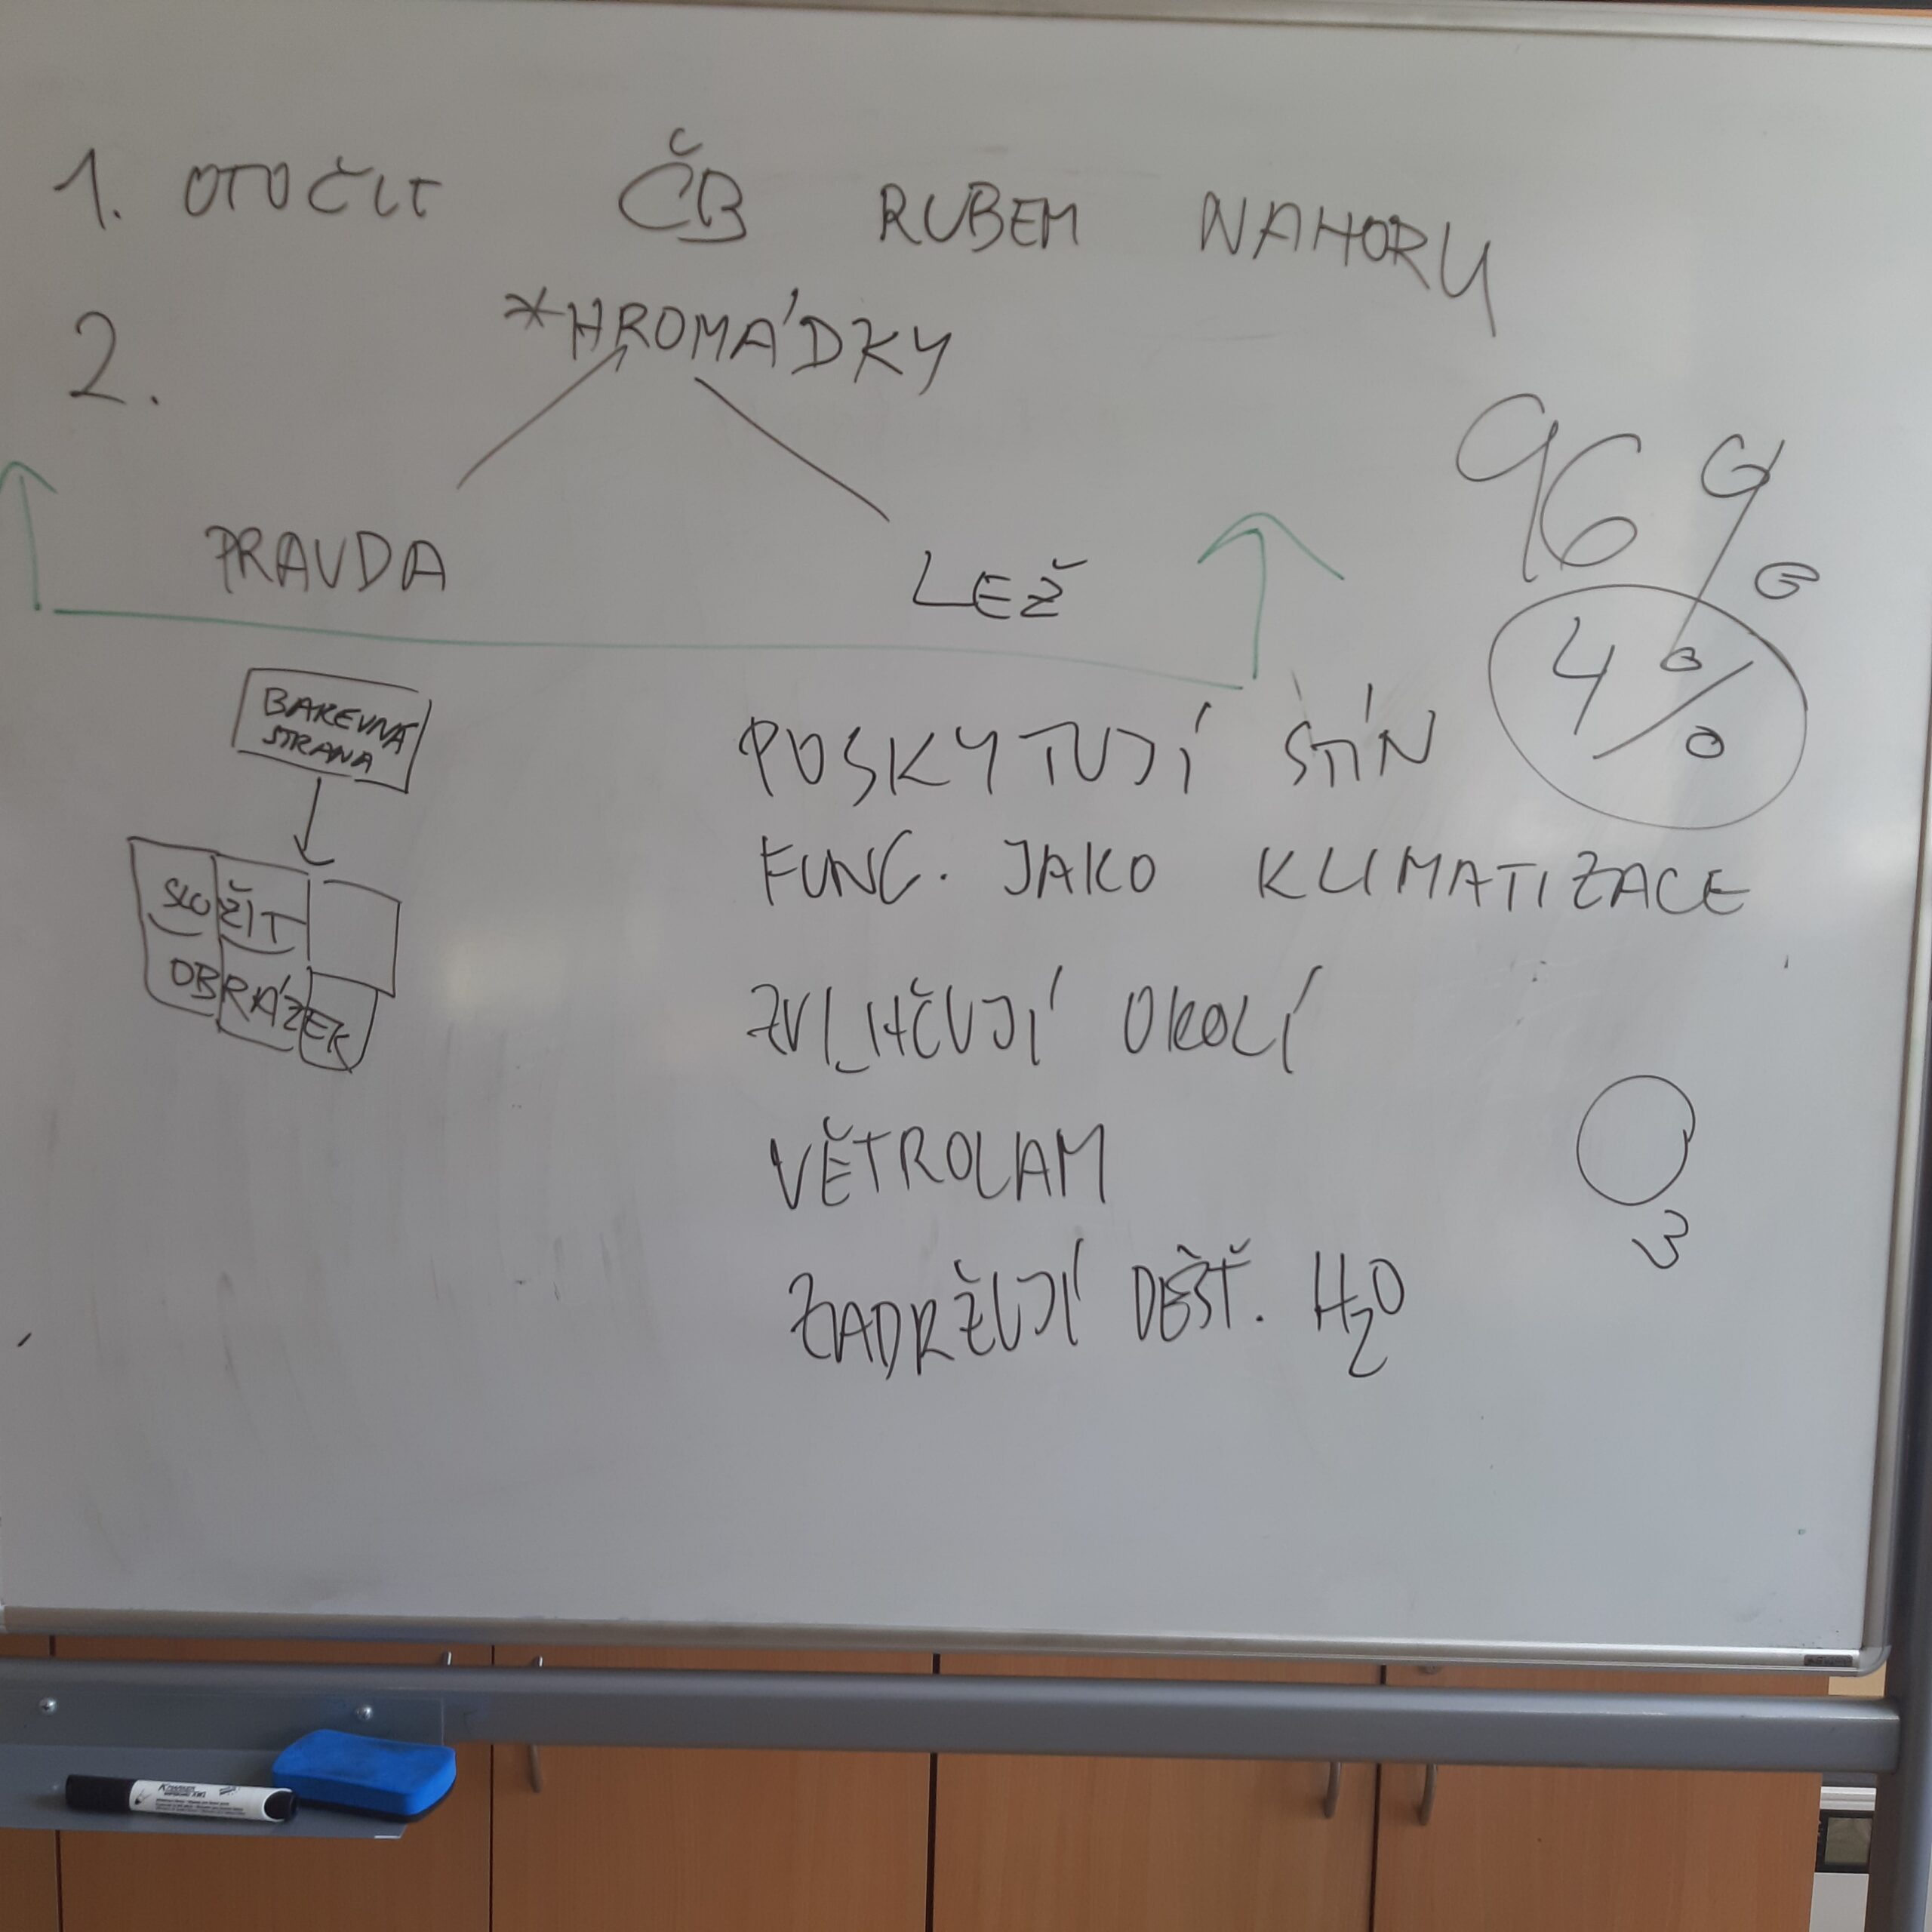 1. OTOČIT ČB RUBEM NAHORU
2. *HROMÁDKY
PRAVDA LEŽ
96 %
4 %
BAREVNÁ
STRANA
SLOŽIT
OBRÁZEK
POSKYTUJÍ STÍN
FUNG. JAKO KLIMATIZACE
ZVLHČUJÍ OKOLÍ
VĚTROLAM
O3
ZADRŽUJÍ DEŠŤ. H2O